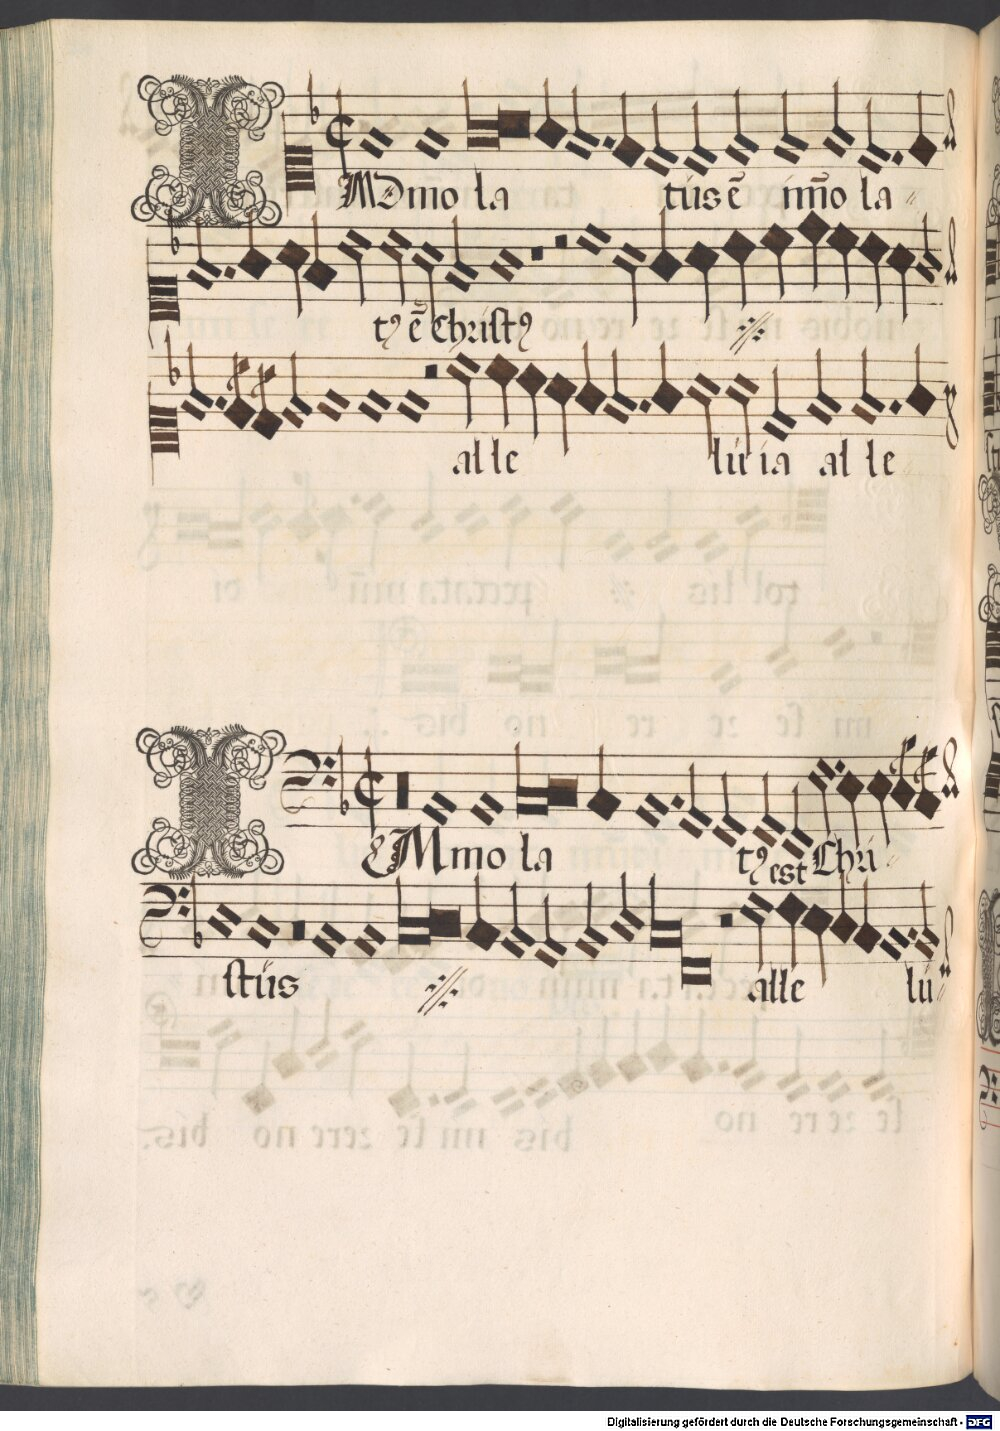 IMmo la tus ē im̄o la
tꝰ ē Christꝰ
al le lu ia al le
IMmo la tꝰ est Chri
stus alle lu
Digitalisierung gefördert durch die Deutsche Forschungsgemeinschaft - DFG